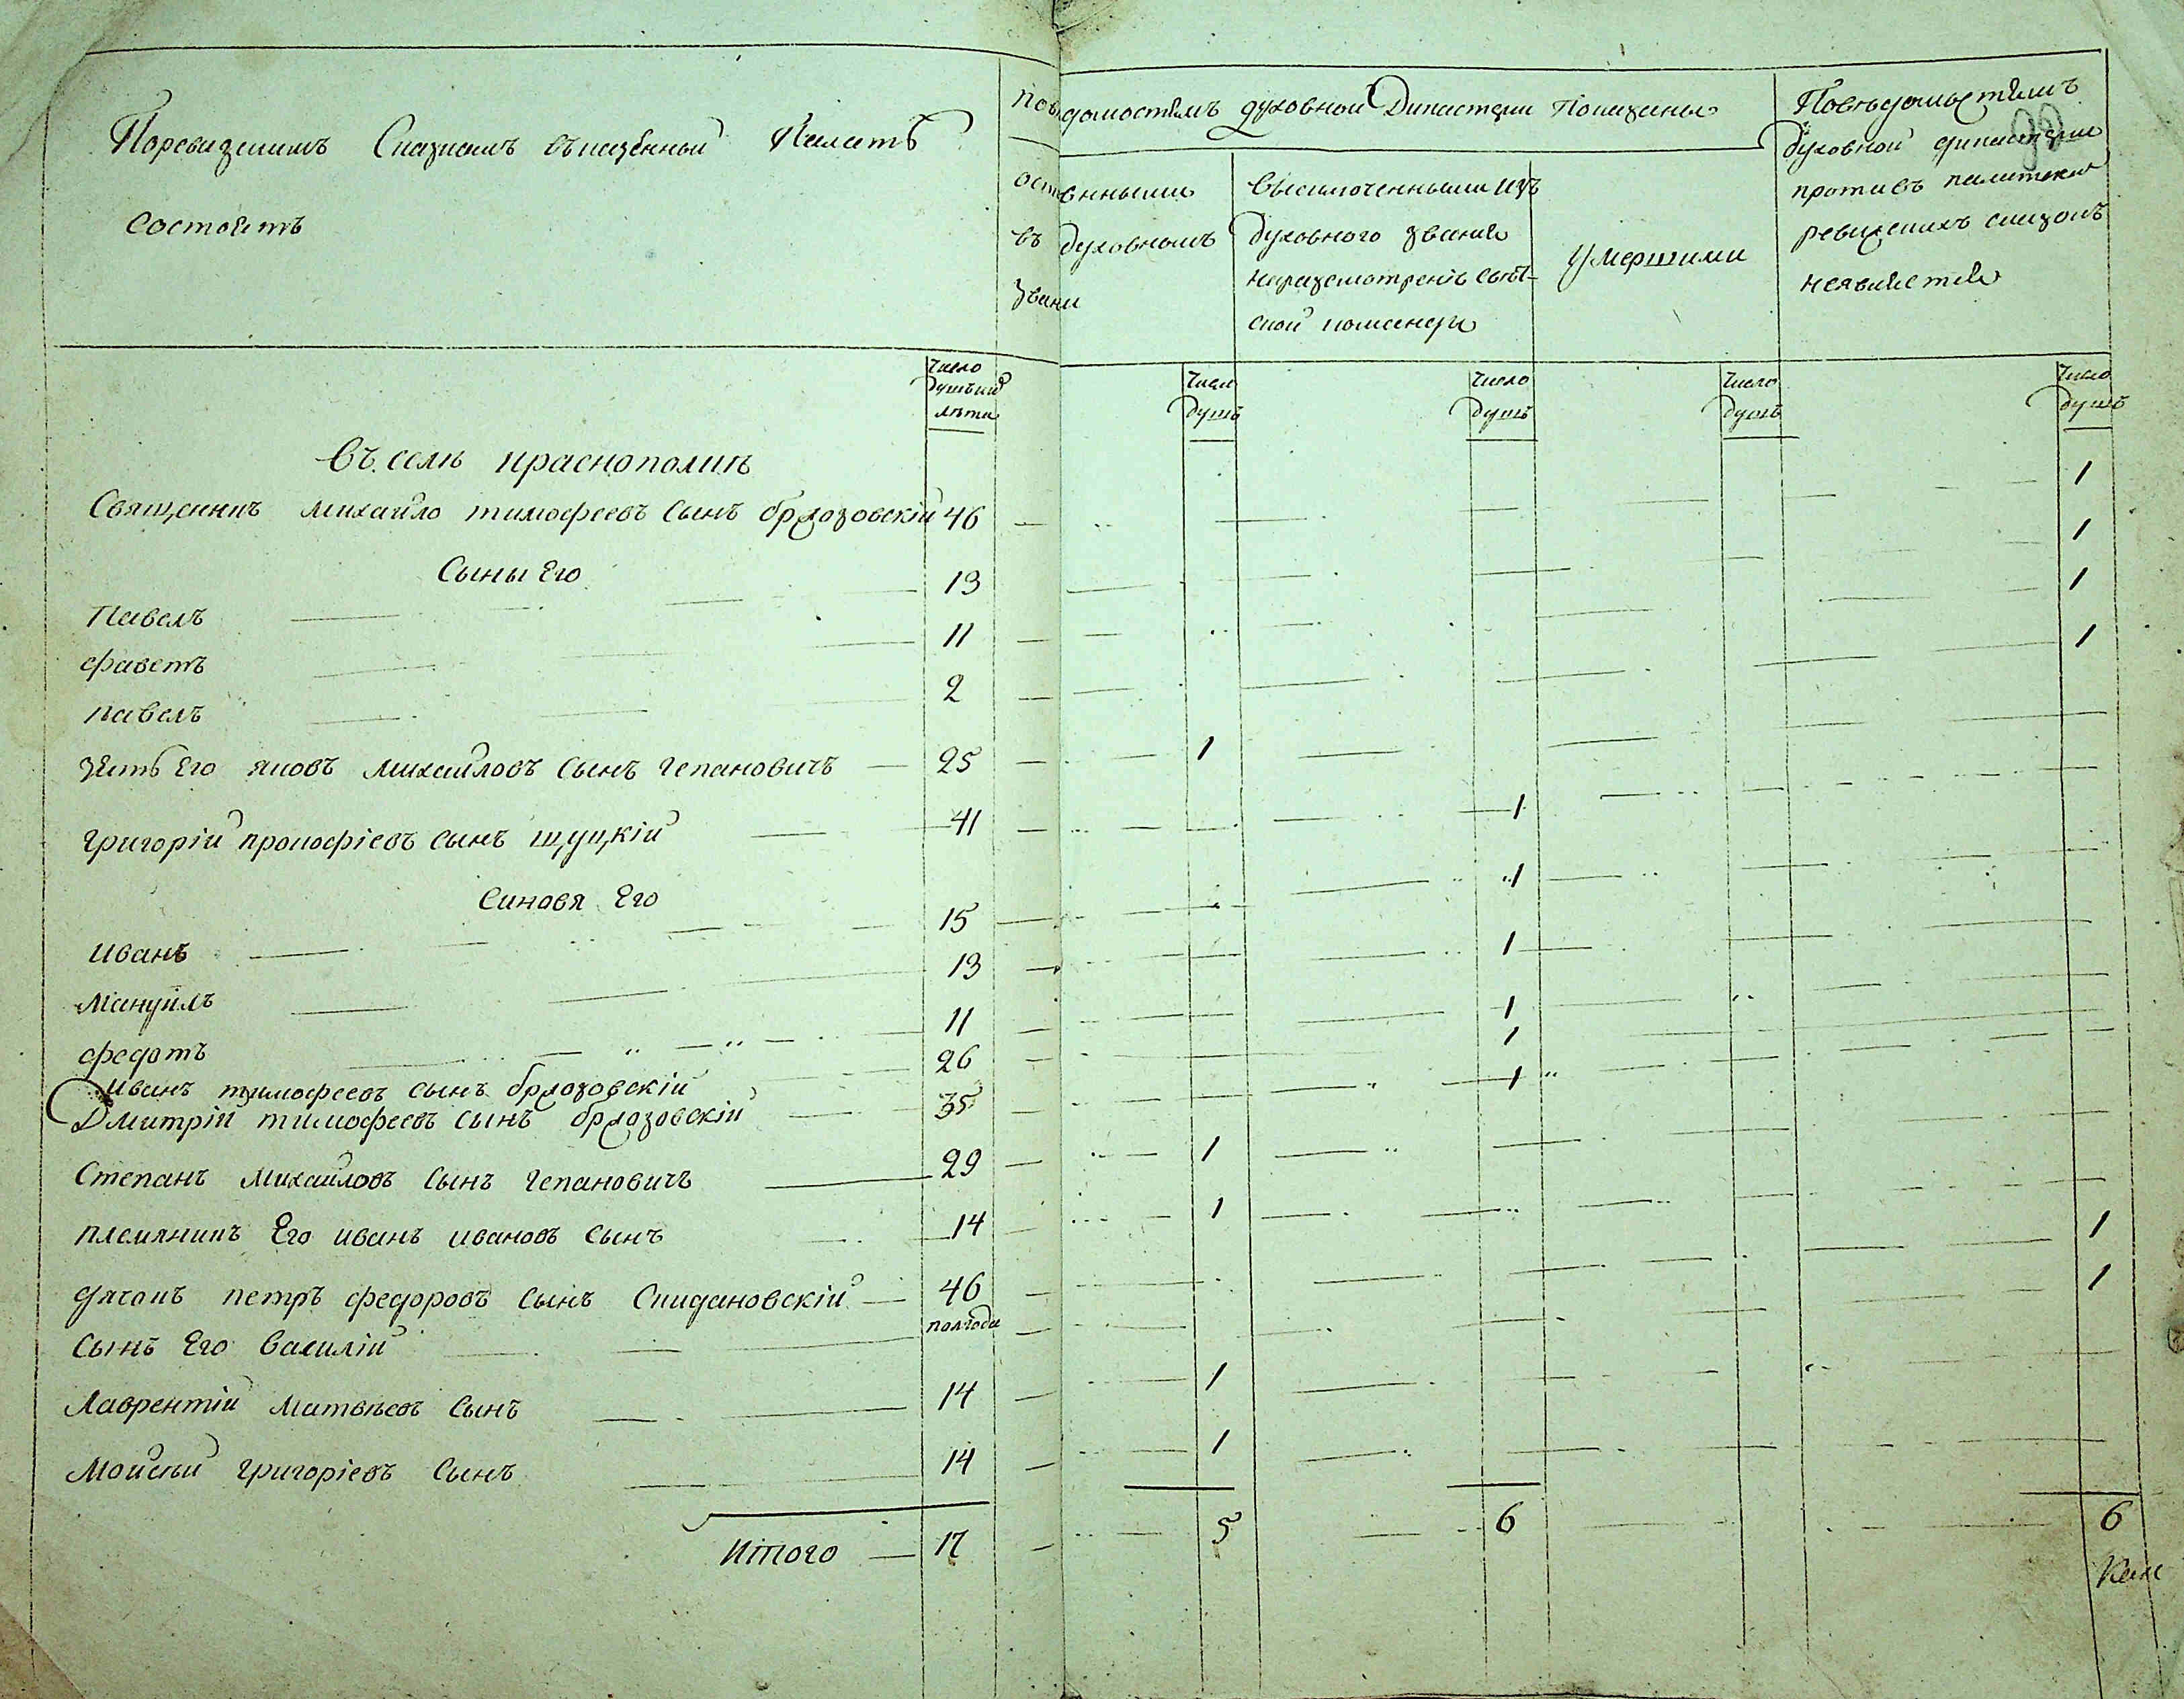 Поревизскимъ Сказкамъ въказенной Палатѣ
состоитъ
Повѣдомостямъ духовной Дикастерии Показаны
оставенными
въ духовномъ
звани
высключенными изъ
духовного звания
наразсмотрение свет-
ской команды
Умершими
Повѣдомостямъ
духовной дикастерии
противъ палатских
ревизскихъ сказокъ
неявляется
Число
душъ и
лѣта
Число
душъ
Число
душъ
Число
душъ
Число
душъ
Въ селѣ Краснополкѣ
Священикъ михайло тимофеевъ сынъ брлозовскій 46 1
Сыны Его
Павелъ 13 1
11 1
павелъ 2 1
зять Его яковъ михайловъ сынъ чепановичъ 25 1
григорій прокофіевъ сынъ щуцкій 41 1
Синовя Его
иванъ 15 1
мануйлъ 13 1
федотъ 11 1
иванъ тимофеевъ сынъ брлозовскій 26 1
Дмитрій тимофеевъ сынъ брлозовскій 35 1
Степанъ михайловъ сынъ чепановичъ 29 1
племяникъ Его иванъ ивановъ сынъ 14 1
дячокъ петръ федоровъ сынъ Скидановскій 46 1
сынъ Его василій полгода 1
Лаврентій матвѣевъ сынъ 14 1
Моисѣй григоріевъ сынъ 14 1
Итого 17 5 6 6